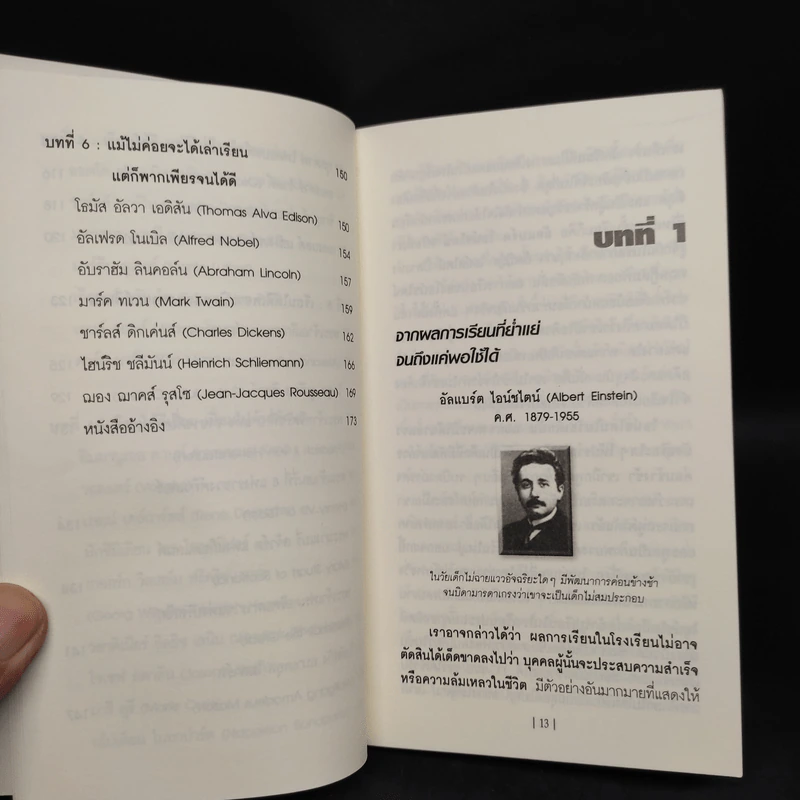 บทที่ 6 : แม้ไม่ค่อยจะได้เล่าเรียน
แต่ก็พากเพียรจนได้ดี 150
โธมัส อัลวา เอดิสัน (Thomas Alva Edison) 150
อัลเฟรด โนเบิล (Alfred Nobel) 154
อับราฮัม ลินคอล์น (Abraham Lincoln) 157
มาร์ค ทเวน (Mark Twain) 159
ชาร์ลส์ ดิกเค่นส์ (Charles Dickens) 162
ไฮน์ริช ชลีมันน์ (Heinrich Schliemann) 166
ฌอง ฌาคส์ รุสโซ (Jean-Jacques Rousseau) 169
หนังสืออ้างอิง 173
บทที่ 1
จากผลการเรียนที่ย่ำแย่
จนถึงแค่พอใช้ได้
อัลแบร์ต ไอน์ชไตน์ (Albert Einstein)
ค.ศ. 1879-1955
ในวัยเด็กไม่ฉายแววอัจฉริยะใดๆ มีพัฒนาการค่อนข้างช้า
จนบิดามารดาเกรงว่าเขาจะเป็นเด็กไม่สมประกอบ
เราอาจกล่าวได้ว่า ผลการเรียนในโรงเรียนไม่อาจ
ตัดสินได้เด็ดขาดลงไปว่า บุคคลผู้นั้นจะประสบความสำเร็จ
หรือความล้มเหลวในชีวิต มีตัวอย่างอันมากมายที่แสดงให้
| 13 |